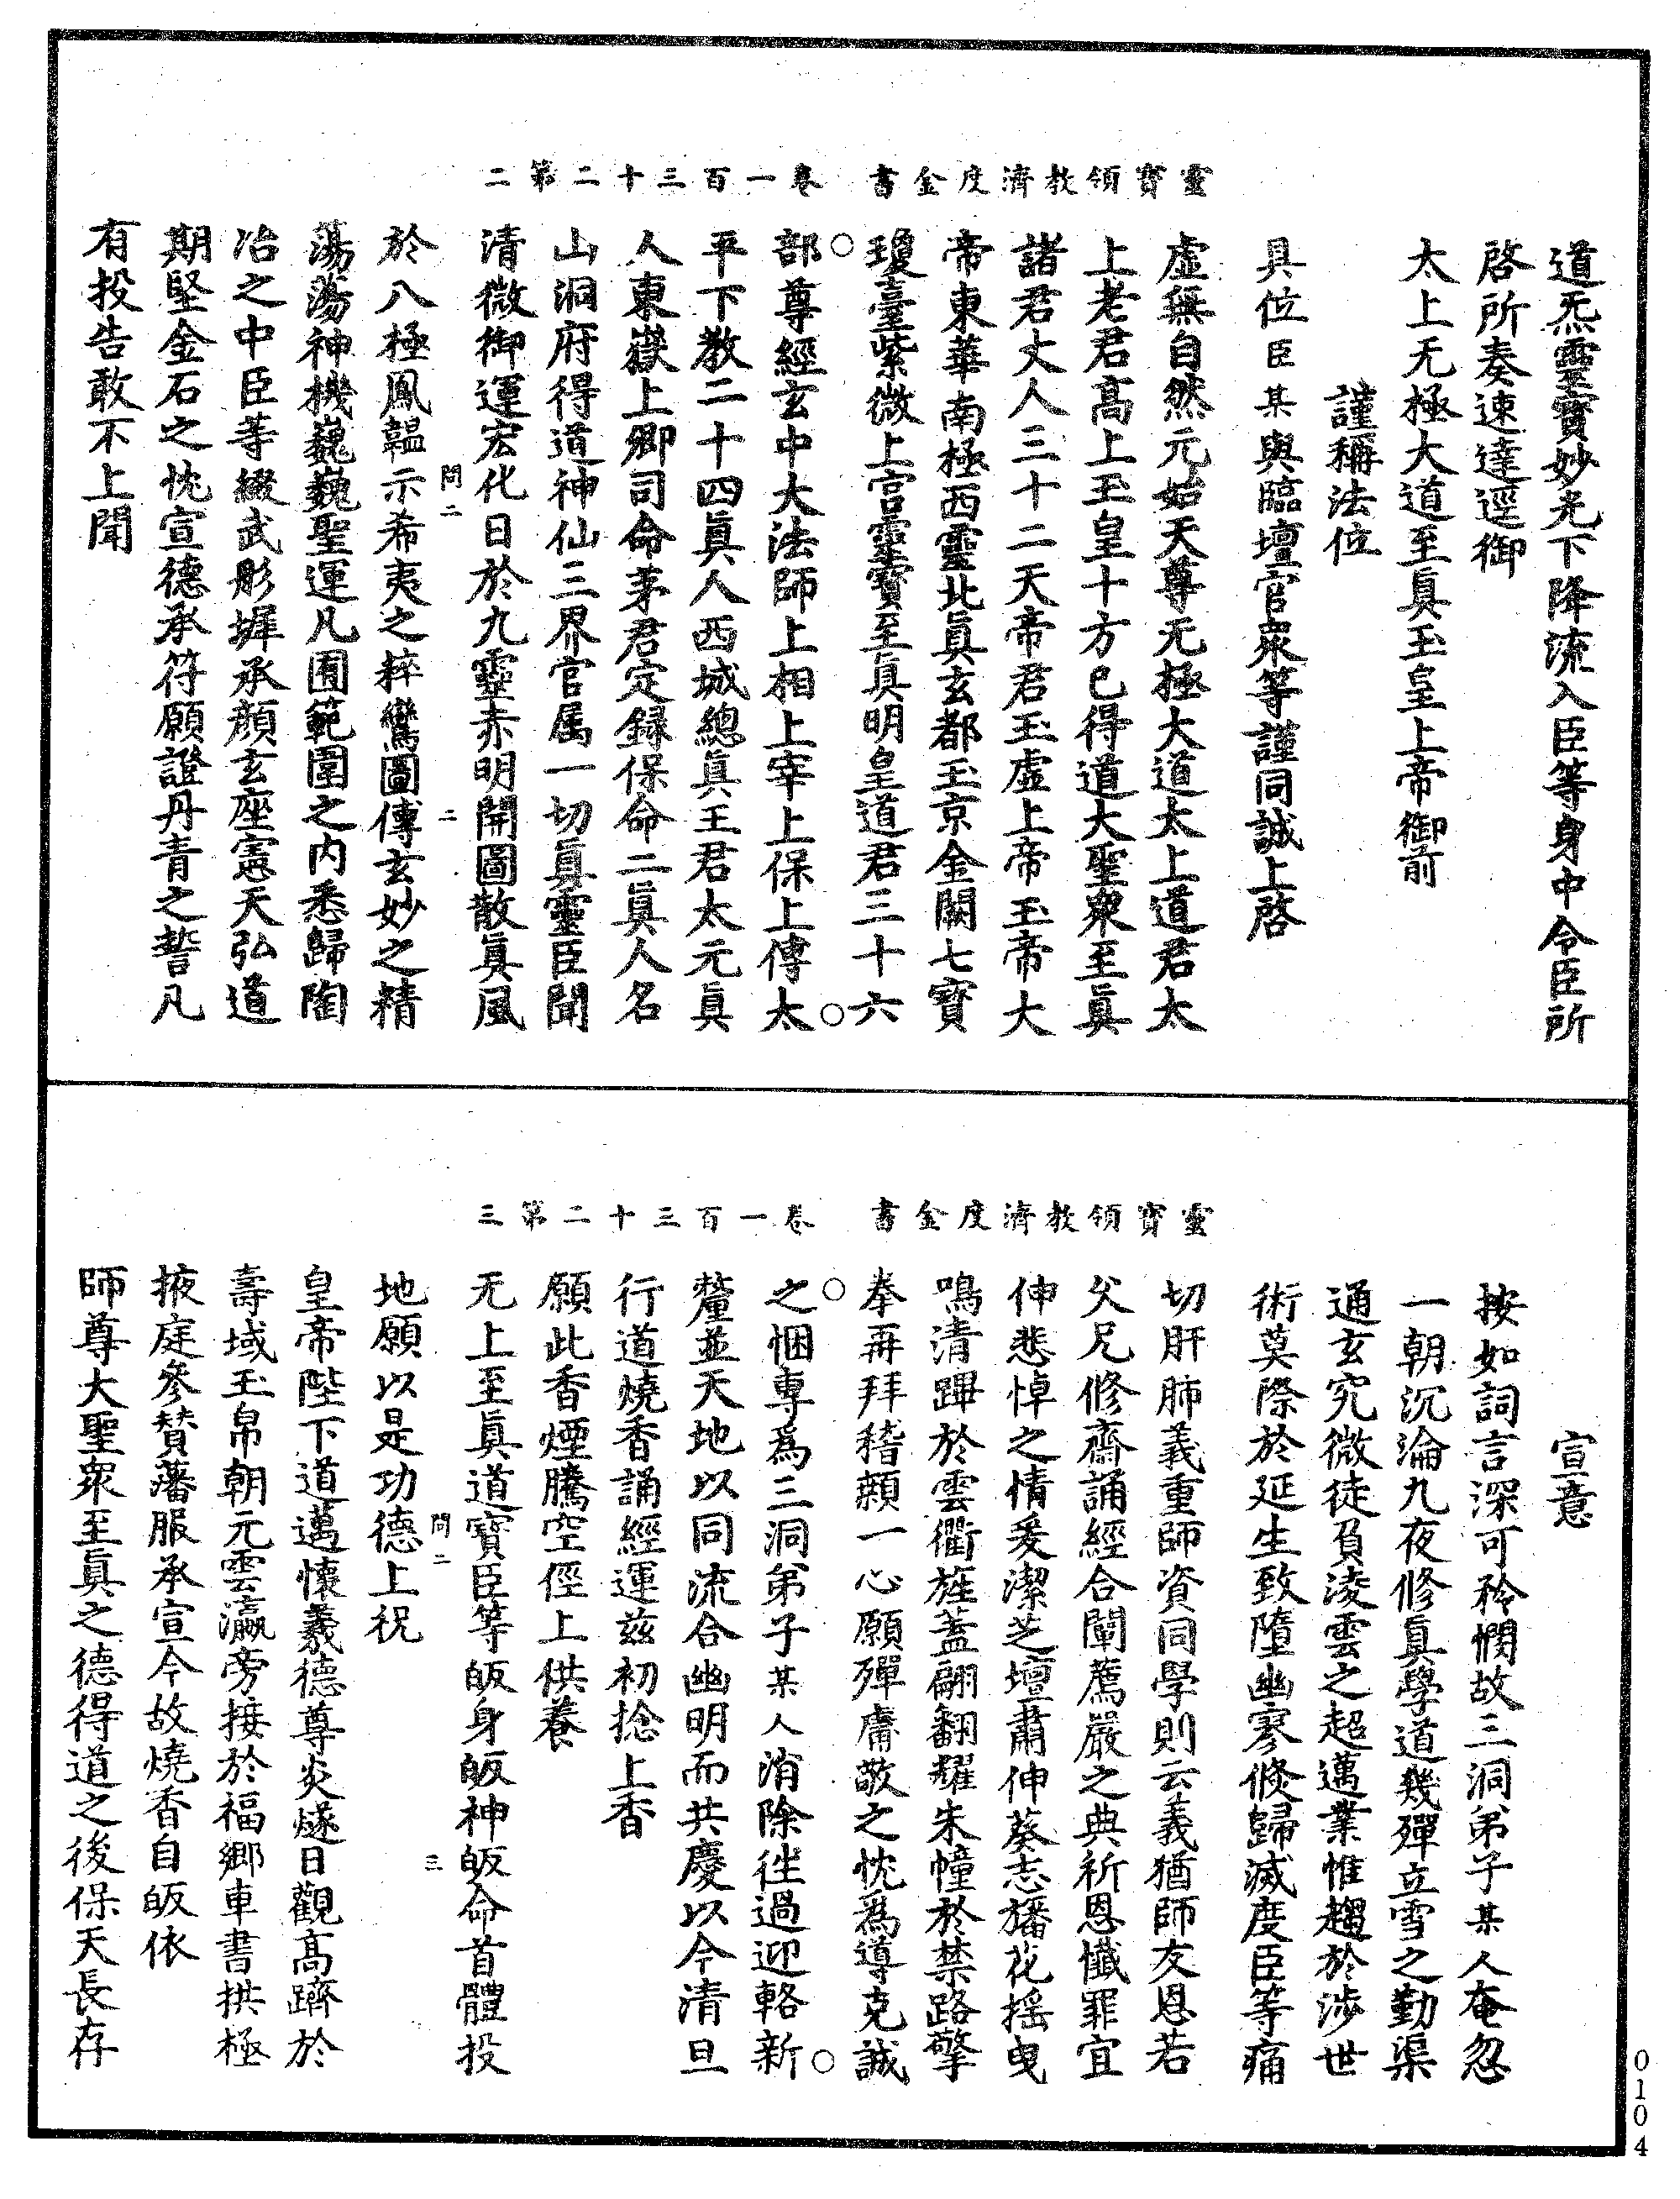 靈寶領教濟度金書　卷一百三十二第二
道炁靈寶妙光下降流入臣等身中令臣所
啓所奏速達逕御
太上无極大道至眞玉皇上帝御前
謹稱法位
具位臣某與臨壇官衆等謹同誠上啓
虛無自然元始天尊无極大道太上道君太
上老君高上玉皇十方已得道大聖衆至眞
諸君丈人三十二天帝君玉虛上帝玉帝大
帝東華南極西靈北眞玄都玉京金闕七寶
瓊臺紫微上宮靈寶至眞明皇道君三十六
部尊經玄中大法師上相上宰上保上傅太
平下敎二十四眞人西城總眞王君太元眞
人東嶽上卿司命茅君定録保命二眞人名
山洞府得道神仙三界官属一切眞靈臣聞
清微御運宏化日於九靈赤明開圖散眞風
於八極鳳韞示希夷之粹鸞圖傳玄妙之精
蕩蕩神機巍巍聖運凡囿範圍之內悉歸陶
冶之中臣等綴武彤墀承顏玄座憲天弘道
期堅金石之忱宣德承符願證丹青之誓凡
有投告敢不上聞
問二　二
靈寶領教濟度金書　卷一百三十二第三
宣意
按如詞言深可矜憫故三洞弟子某人奄忽
一朝沉淪九夜修眞學道幾殫立雪之勤渠
通玄究微徒負淩雲之超邁業惟趨於涉世
術莫際於延生致墮幽寥倐歸滅度臣等痛
切肝肺義重師資同學則云義猶師友恩若
父兄修齋誦經合闡薦嚴之典祈恩懺罪宜
伸悲悼之情爰潔芝壇肅伸葵志旛花搖曳
鳴清蹕於雲衢旌蓋翩翻耀朱幢於禁路擎
拳再拜稽顙一心願殫庸敬之忱爲導克誠
之悃專爲三洞弟子某人消除徃過迎輅新
釐並天地以同流合幽明而共慶以今清旦
行道燒香誦經運兹初捻上香
願此香煙騰空徑上供養
无上至眞道寶臣等皈身皈神皈命首體投
地願以是功德上祝
皇帝陛下道邁懷羲德尊炎燧日觀高躋於
壽域玉帛朝元雲瀛旁接於福鄉車書拱極
掖庭參贊藩服承宣今故燒香自皈依
師尊大聖衆至眞之德得道之後保天長存
問二　三
0104